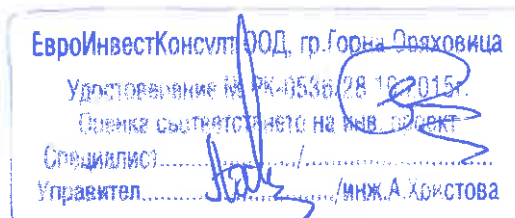 ЕвроИнвестКонсулт ООД, гр.Горна Оряховица
Удостоверение № РК-0536/28.10.2015г.
Оценка съответствието на инв. проект
Специалист............../..............
Управител............../инж.А.Христова